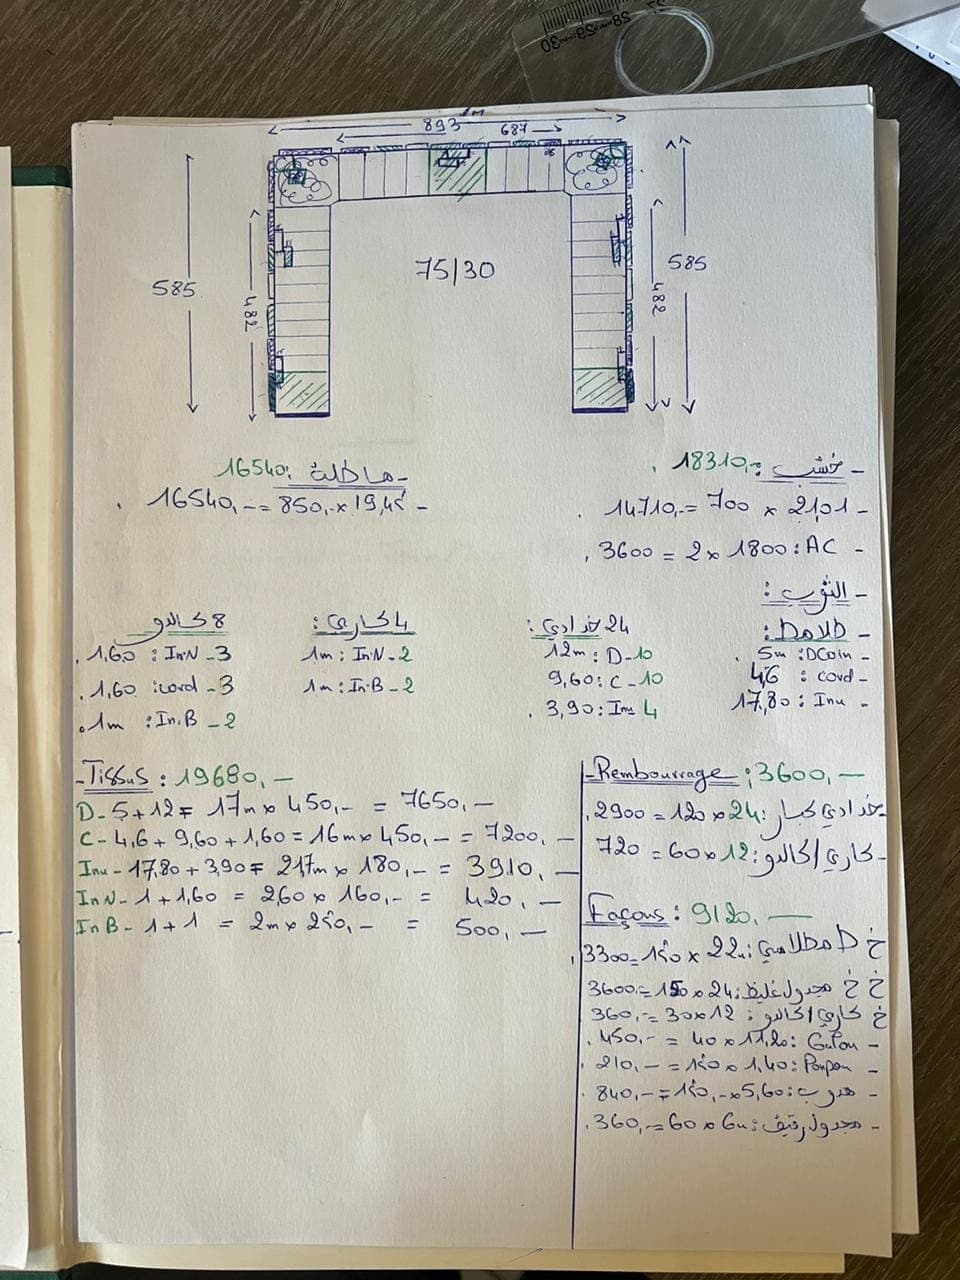 893
687
585
482
75/30
482
585
- خشب : 18310,-
14710,- = 700 x 21,01 -
3600 = 2 x 1800 : AC -
- ماطلة : 16540
16540,- = 850,- x 19,45 -
- الثوب :
- طلامط :
5m : DCoin -
4,6 : cord -
17,80 : Inu -
24 خدادي :
12m : D - 10
9,60 : C - 10
3,90 : Inu 4
4 كاري :
1m : In.N - 2
1m : In.B - 2
8 كالدو
1,60 : In.N - 3
1,60 : cord - 3
1m : In.B - 2
- Tissus : 19680,-
D - 5 + 12 = 17m x 450,- = 7650,-
C - 4,6 + 9,60 + 1,60 = 16m x 450,- = 7200,-
Inu - 17,80 + 3,90 = 21,7m x 180,- = 3910,-
In N - 1 + 1,60 = 2,60 x 160,- = 420,-
In B - 1 + 1 = 2m x 250,- = 500,-
- Rembourrage : 3600,-
2900 = 120 x 24 : خدادي كبار -
720 = 60 x 12 : كاري/كالدو -
Façons : 9120,-
3300 = 150 x 22 : طلامط
3600 = 150 x 24 : مجدول غليظ خ خ
360,- = 30 x 12 : كاري/كالدو خ
450,- = 40 x 11,20 : Galon -
210,- = 150 x 1,40 : Ponpon -
840,- = 150,- x 5,60 : هدوب -
360,- = 60 x 6m : مجدول رقيق -